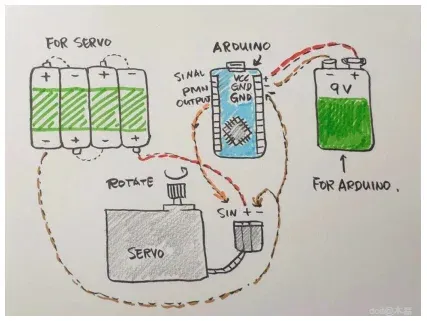 FOR SERVO
ARDUINO
+ - + -
- + - +
SINAL
PMN
OUTPUT
VCC
GND
GND
+
-
- +
9V
FOR ARDUINO.
ROTATE
SIN + -
SERVO